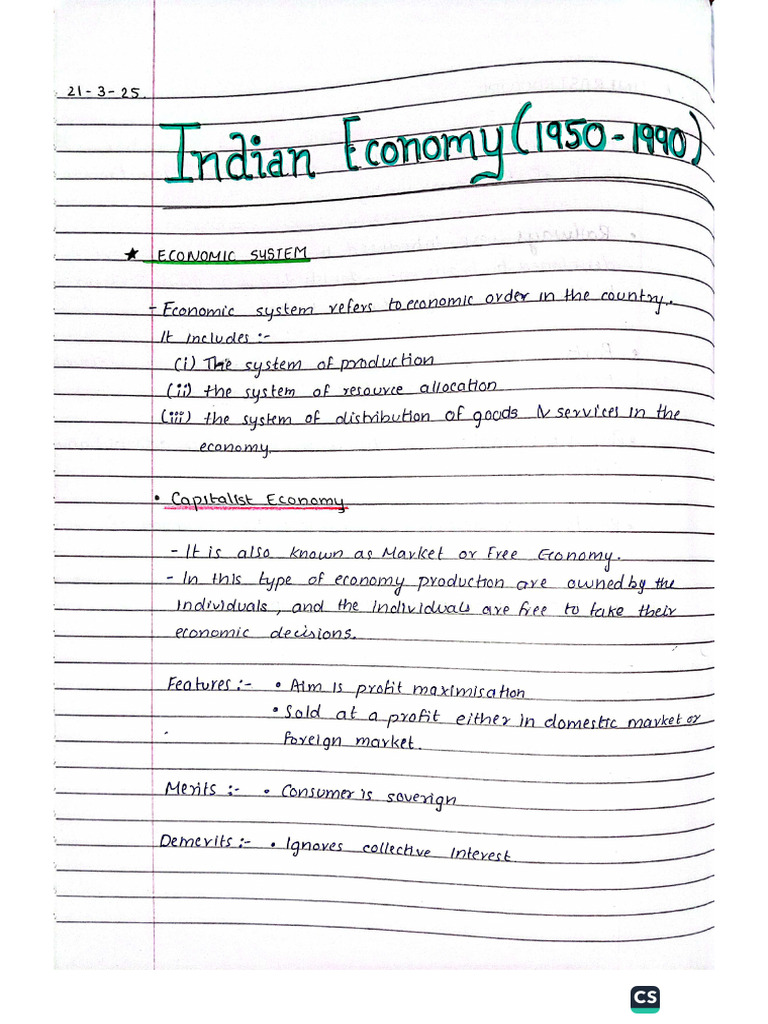 21-3-25.
Indian Economy (1950-1990)
★ ECONOMIC SYSTEM
- Economic system refers to economic order in the country.
It includes :-
(i) The system of production
(ii) the system of resource allocation
(iii) the system of distribution of goods & services in the
economy.
• Capitalist Economy
- It is also known as Market or Free Economy.
- In this type of economy production are owned by the
individuals, and the individuals are free to take their
economic decisions.
Features :- • Aim is profit maximisation
• Sold at a profit either in domestic market or
foreign market.
Merits :- • Consumer is soverign
Demerits :- • Ignores collective interest
CS